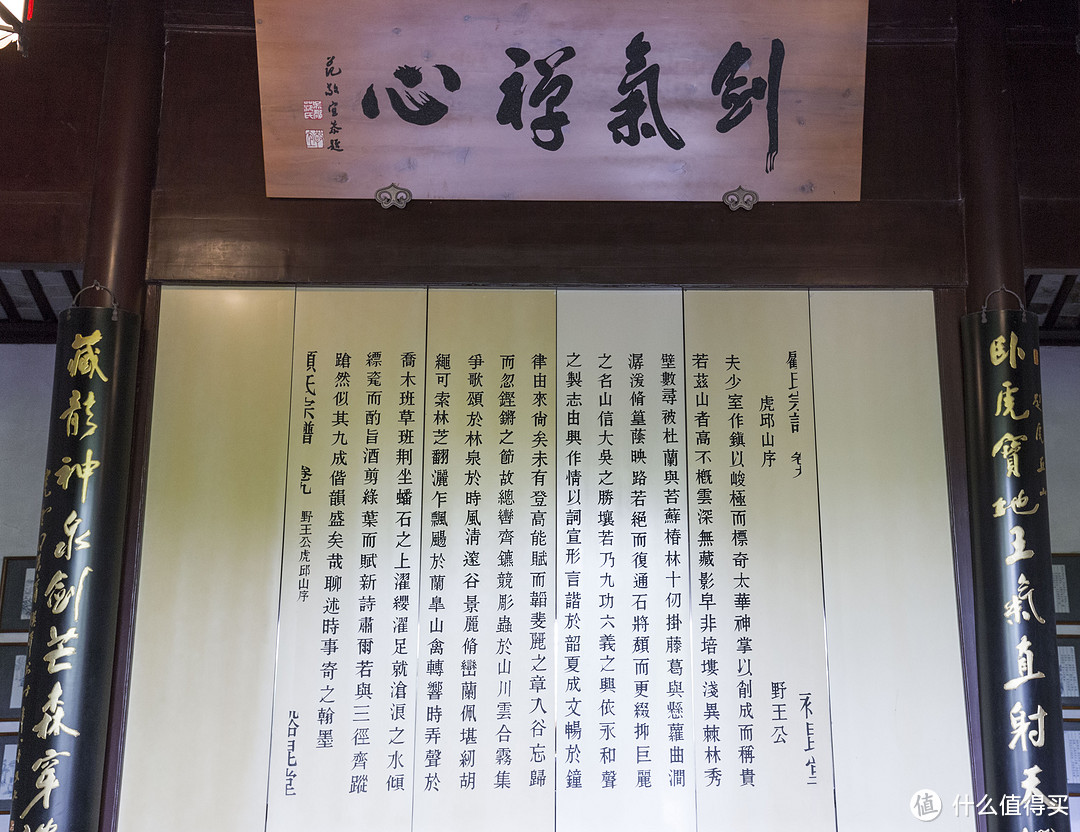 劍氣禪心
范敬宜恭題
臥虎寶地王氣直射天
虎邱山序
野王公
夫少室作鎮以峻極而標奇太華神掌以創成而稱貴
若茲山者高不概雲深無藏影阜非培塿淺異棘林秀
壁數尋被杜蘭與苔蘚椿林十仞掛藤葛與懸蘿曲澗
潺湲脩篁蔭映路若絕而復通石將頹而更綴抑巨麗
之名山信大吳之勝壤若乃九功六義之興依永和聲
之製志由興作情以詞宣形言諧於韶夏成文暢於鐘
律由來尙矣未有登高能賦而韜斐麗之章入谷忘歸
而忽鏗鏘之節故總轡齊鑣競彫蟲於山川雲合霧集
爭歌頌於林泉於時風清邃谷景麗脩巒蘭佩堪紉胡
繩可索林芝翻灑乍飄颺於蘭皐山禽轉響時弄聲於
喬木班草班荆坐蟠石之上濯纓濯足就滄浪之水傾
縹瓷而酌旨酒剪綠葉而賦新詩肅爾若與三徑齊蹤
蹌然似其九成偕韻盛矣哉聊述時事寄之翰墨
顧氏宗譜 卷九 野王公虎邱山序
藏龍神泉劍芒森穿
值 什么值得买